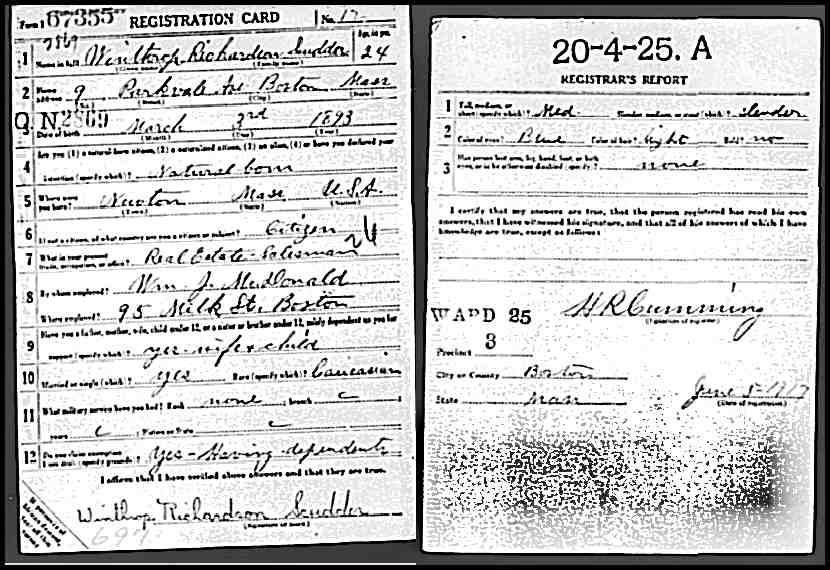 Form 1 67355 REGISTRATION CARD No. 17
2569 Age, in yrs.
1 Name in full Winthrop Richardson Scudder 24
(Given name) (Family name)
2 Home address 9 Parkvale Ave Boston Mass
(No.) (Street) (City) (State)
O. N 2869
3 Date of birth March 3rd 1893
(Month) (Day) (Year)
Are you (1) a natural born citizen, (2) a naturalized citizen, (3) an alien, (4) or have you declared your
4 intention (specify which)? Natural born
5 Where were you born? Newton Mass U.S.A.
(Town) (State) (Nation)
6 If not a citizen, of what country are you a citizen or subject? Citizen
7 What is your present trade, occupation, or office? Real Estate Salesman 24
8 By whom employed? Wm J. McDonald
Where employed? 95 Milk St. Boston
Have you a father, mother, wife, child under 12, or a sister or brother under 12, solely dependent on you for
9 support (specify which)? yes - wife & child
10 Married or single (which)? yes Race (specify which)? Caucasian
11 What military service have you had? Rank none branch
years Nation or State
12 Do you claim exemption from draft (specify grounds)? Yes - Having dependents
I affirm that I have verified above answers and that they are true.
Winthrop Richardson Scudder
(Signature or mark)
697
20-4-25. A
REGISTRAR'S REPORT
1 Tall, medium, or short (specify which)? Med. Slender, medium, or stout (which)? slender
2 Color of eyes? Blue Color of hair? light Bald? no
3 Has person lost arm, leg, hand, foot, or both eyes, or is he otherwise disabled (specify)? none
I certify that my answers are true, that the person registered has read his own
answers, that I have witnessed his signature, and that all of his answers of which I have
knowledge are true, except as follows:
H R Cumming
(Signature of registrar)
WARD 25
Precinct 3
City or County Boston
State Mass June 5 - 1917
(Date of registration)